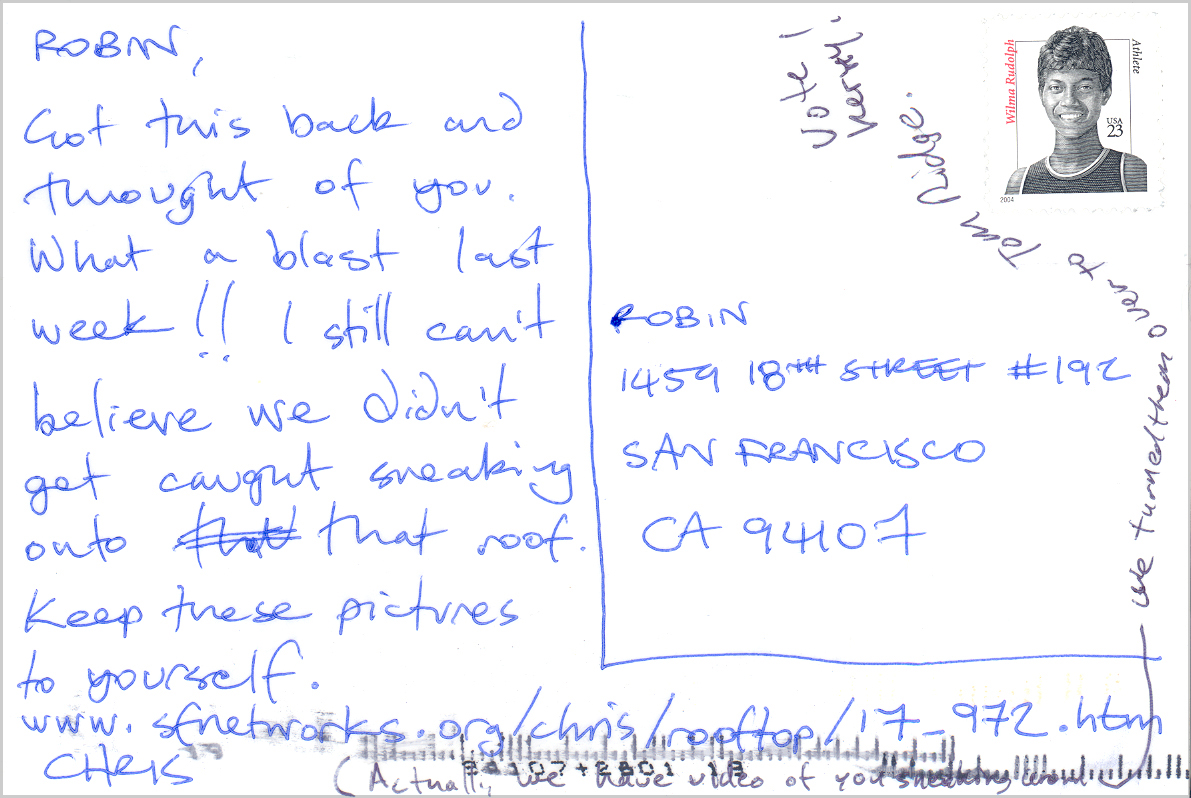 ROBIN,
Got this back and
thought of you.
What a blast last
week!! I still can't
believe we didn't
get caught sneaking
onto that roof.
Keep these pictures
to yourself.
www.sfnetworks.org/chris/rooftop/17_972.htm
CHRIS
Vote!
Kerry!
Wilma Rudolph
Athlete
USA
23
2004
ROBIN
1459 18TH STREET #192
SAN FRANCISCO
CA 94107
(Actually, we have video of you sneaking around
— we turned them over to Tom Ridge.